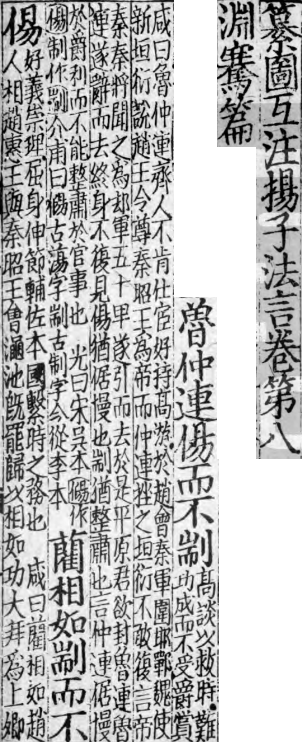 纂圖互注揚子法言卷第八
淵騫篇
魯仲連偒而不剬
高談以救時難
功成而不受爵賞
咸曰魯仲連齊人不肯仕宦好持高游於趙會秦軍圍邯鄲魏使
新垣衍說趙王令尊秦昭王為帝而仲連挫之垣衍不敢復言帝
秦秦將聞之為却軍五十里遂引而去於是平原君欲封魯連魯
連遂辭而去終身不復見偒猶倨慢也剬猶整肅也言仲連倨慢
於爵利而不能整肅於官事也 光曰宋吳本偒作
偒制作剬介甫曰偒古蕩字剬古制字今從李本
藺相如剬而不
偒
好義崇理屈身伸節輔佐本國繫時之務也 咸曰藺相如趙
人相趙惠王西秦昭王會澠池既罷歸以相如功大拜為上卿